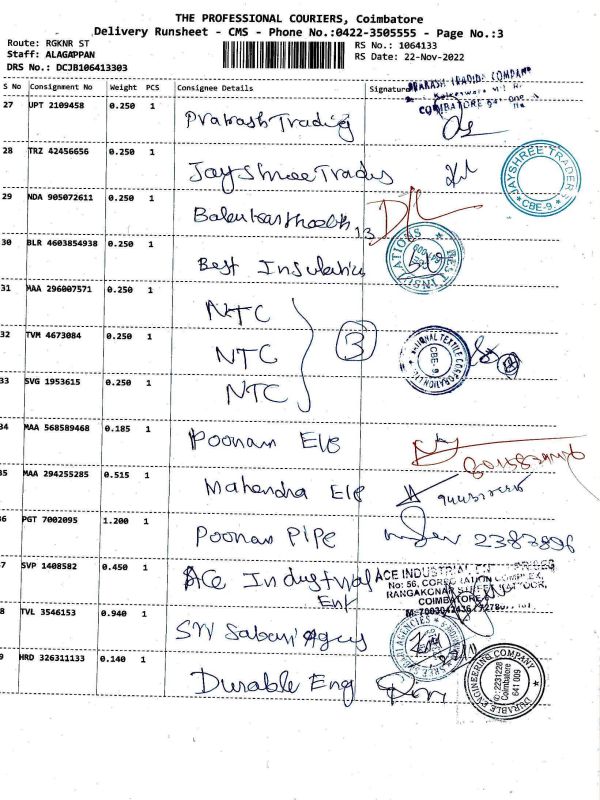 THE PROFESSIONAL COURIERS, Coimbatore
Delivery Runsheet - CMS - Phone No.:0422-3505555 - Page No.:3
Route: RGKNR ST
RS No.: 1064133
Staff: ALAGAPPAN
RS Date: 22-Nov-2022
DRS No.: DCJB106413303
S No Consignment No Weight PCS Consignee Details Signature
PRAKASH TRADING COMPANY
COIMBATORE
27 UPT 2109458 0.250 1 Prakash Trading
28 TRZ 42456656 0.250 1 Jay Shree Trades
JAYSHREE TRADERS
CBE-9.
29 NDA 905072611 0.250 1
13
30 BLR 4603854938 0.250 1 Best Insulation
BEST INSULATIONS
31 MAA 296007571 0.250 1 NTC
32 TVM 4673084 0.250 1 NTC 3
NATIONAL TEXTILE CORPORATION
CBE-9
33 SVG 1953615 0.250 1 NTC
34 MAA 568589468 0.185 1 Poonam Ele
35 MAA 294255285 0.515 1 Mahendra Ele
36 PGT 7002095 1.200 1 Poonam Pipe 2387896
37 SVP 1408582 0.450 1 Ace Industrial Ent
ACE INDUSTRIAL ENTERPRISES
No: 56, CORPORATION COMPLEX,
RANGAKONAR STREET, KATTOOR,
COIMBATORE
38 TVL 3546153 0.940 1 Sri Sabari Agency
SABARI AGENCIES
39 HRD 326311133 0.140 1 Durable Eng
DURABLE ENGINEERING COMPANY
2231228
Coimbatore
641 009